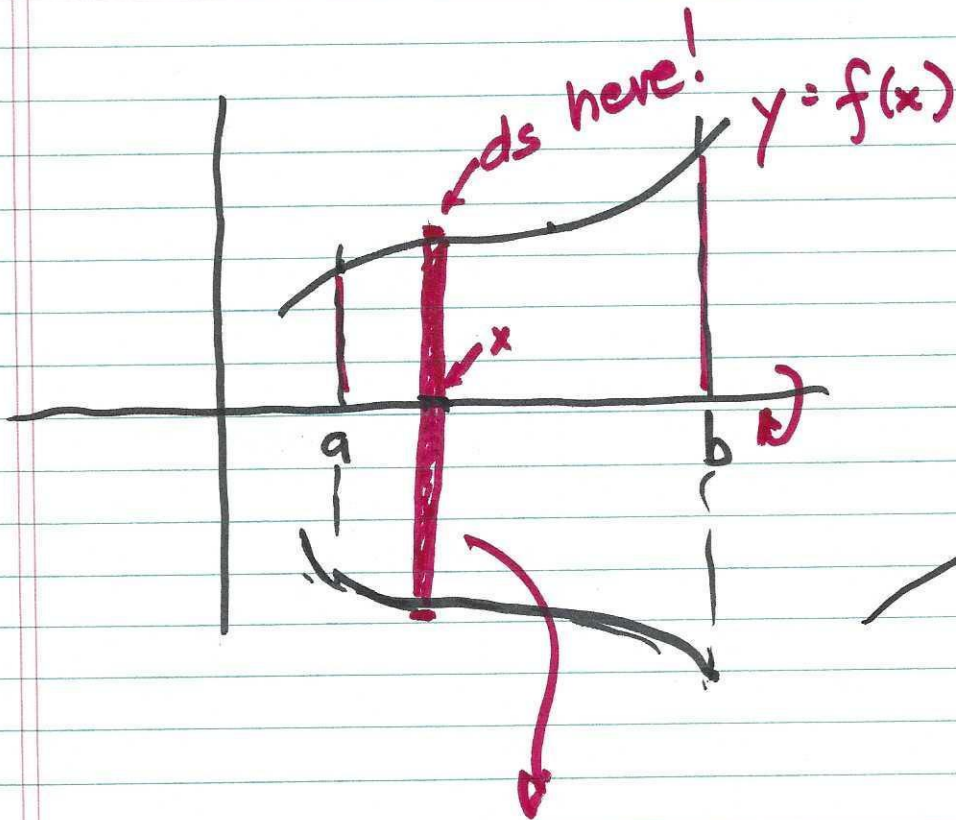 ds here!
y = f(x)
x
a
b